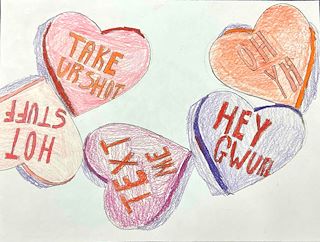 TAKE
UR SHOT
OH
MY
HOT
STUFF
TEXT
ME
HEY
GWURL